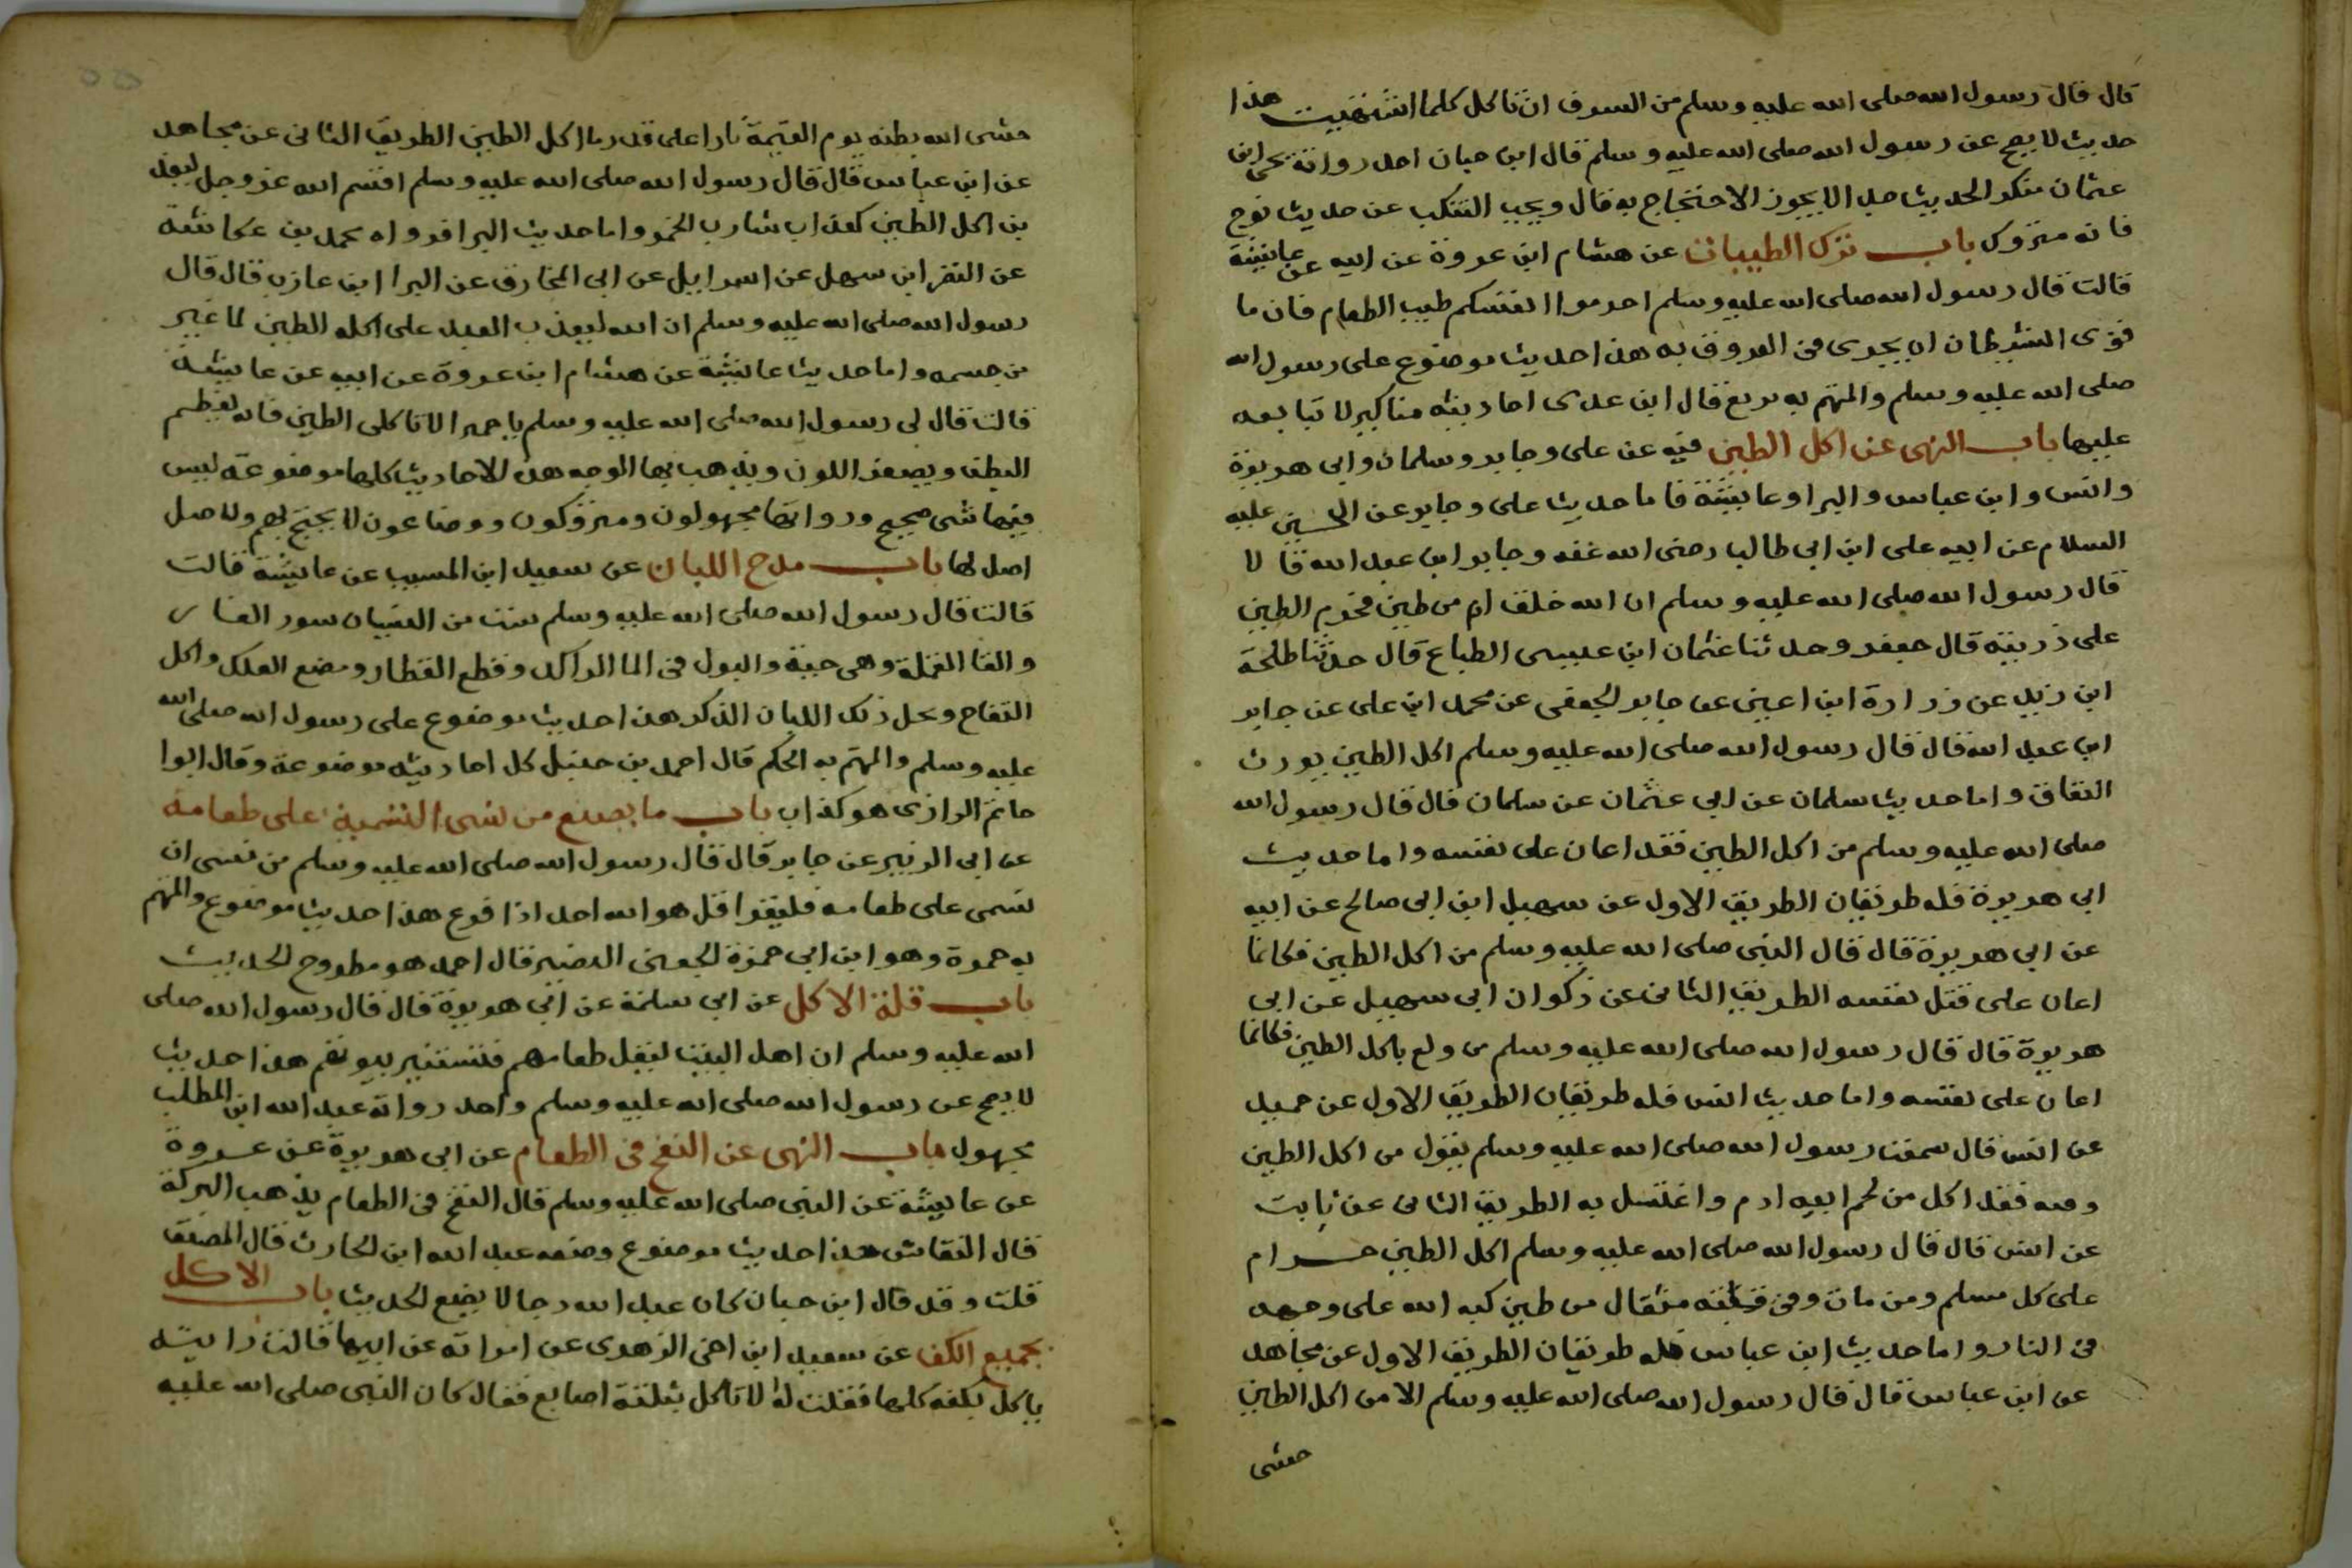 قال قال رسول الله صلى الله عليه وسلم من السرف ان تاكل كلما اشتهيت هذا
حديث لا يصح عن رسول الله صلى الله عليه وسلم قال ابن حبان احد رواته يحى ابن
عثمان منكر الحديث جدا لا يجوز الاحتجاج به قال ويجب التنكب عن حديث نوح
فانه متروك باب ترك الطيبات عن هشام ابن عروة عن ابيه عن عايشة
قالت قال رسول الله صلى الله عليه وسلم احرموا انفسكم طيب الطعام فان ما
قوى الشيطان ان يجرى فى العروق به هذا حديث موضوع على رسول الله
صلى الله عليه وسلم والمتهم به بزيع قال ابن عدى احاديثه مناكير لا يتابعه
عليها باب النهى عن اكل الطين فيه عن على وجابر وسلمان وابى هريرة
وانس وابن عباس والبرا وعايشة فاما حديث على وجابر عن الحسين عليه
السلام عن ابيه على ابن ابى طالب رضى الله عنه وجابر ابن عبد الله قالا
قال رسول الله صلى الله عليه وسلم ان الله خلق ادم من طين فحرم الطين
على ذريته قال جعفر وحدثنا عثمان ابن عيسى الطباع قال حدثنا طلحة
ابن زيد عن زرارة ابن اعين عن جابر الجعفى عن محمد ابن على عن جابر
ابن عبد الله قال قال رسول الله صلى الله عليه وسلم اكل الطين يورث
النفاق واما حديث سلمان عن ابى عثمان عن سلمان قال قال رسول الله
صلى الله عليه وسلم من اكل الطين فقد اعان على نفسه واما حديث
ابى هريرة فله طريقان الطريق الاول عن سهيل ابن ابى صالح عن ابيه
عن ابى هريرة قال قال النبى صلى الله عليه وسلم من اكل الطين فكانما
اعان على قتل نفسه الطريق الثانى عن ذكوان ابى سهيل عن ابى
هريرة قال قال رسول الله صلى الله عليه وسلم من ولع باكل الطين فكانما
اعان على نفسه واما حديث انس فله طريقان الطريق الاول عن حميد
عن انس قال سمعت رسول الله صلى الله عليه وسلم يقول من اكل الطين
ومنه فقد اكل من لحم ابيه ادم واغتسل به الطريق الثانى عن ثابت
عن انس قال قال رسول الله صلى الله عليه وسلم اكل الطين حرام
على كل مسلم ومن مات وفى مثقال من طين كبه الله على وجهه
فى النار واما حديث ابن عباس فله طريقان الطريق الاول عن مجاهد
عن ابن عباس قال قال رسول الله صلى الله عليه وسلم الا من اكل الطين
حشى
حشى الله بطنه يوم القيمة نارا على قدر ما اكل الطين الطريق الثانى عن مجاهد
عن ابن عباس قال قال رسول الله صلى الله عليه وسلم اقسم الله عز وجل ليعذ
بن اكل الطين كعذاب شارب الخمر واما حديث البرا فرواه محمد بن عكاشة
عن النضر ابن سهل عن اسراييل عن ابى المخارق عن البرا ابن عازب قال قال
رسول الله صلى الله عليه وسلم ان الله ليعذب العبد على اكله الطين لما غير
من جسمه واما حديث عايشة عن هشام ابن عروة عن ابيه عن عايشة
قالت قال لى رسول الله صلى الله عليه وسلم يا حميرا لا تاكلى الطين فانه يعظم
البطن ويصفر اللون ويذهب بها الوجه هذه الاحاديث كلها موضوعة ليس
فيها شى صحيح ورواتها مجهولون ومتروكون ووضاعون لا يحتج بهم ولا اصل
اصل لها باب مدح اللبان عن سعيد ابن المسيب عن عايشة قالت
قالت قال رسول الله صلى الله عليه وسلم ست من النسيان سور الفار
والقا القملة وهى حية والبول فى الما الراكد وقطع القطار ومضع العلك واكل
التفاح ويحل ذلك اللبان الذكر هذا حديث موضوع على رسول الله صلى الله
عليه وسلم والمتهم به الحكم قال احمد بن حنبل كل احاديثه موضوعة وقال ابوا
حاتم الرازى هو كذاب باب ما يصنع من نسى التسمية على طعامه
عن ابى الزبير عن جابر قال قال رسول الله صلى الله عليه وسلم من نسى ان
يسمى على طعامه فليقرا قل هو الله احد اذا فرغ هذا حديث موضوع والمتهم
به حمزة وهو ابن ابى حمزة الجعفى النصيبى قال احمد هو مطروح الحديث
باب قلة الاكل عن ابى سلمة عن ابى هريرة قال قال رسول الله صلى
الله عليه وسلم ان اهل البيت ليقل طعامهم فتستنير بيوتهم هذا حديث
لا يصح عن رسول الله صلى الله عليه وسلم واحد رواته عبد الله ابن المطلب
مجهول باب النهى عن النفخ فى الطعام عن ابى هريرة عن عروة
عن عايشة عن النبى صلى الله عليه وسلم قال النفخ فى الطعام يذهب البركة
قال النقاش هذا حديث موضوع وضعه عبد الله ابن الحارث قال المصنف
قلت وقد قال ابن حبان كان عبد الله دجالا يضع الحديث باب الاكل
بجميع الكف عن سعيد ابن اخى الزهرى عن امراته عن ابيها قالت رايته
ياكل بكفه كلها فقلت له لا تاكل بثلثة اصابع فقال كان النبى صلى الله عليه